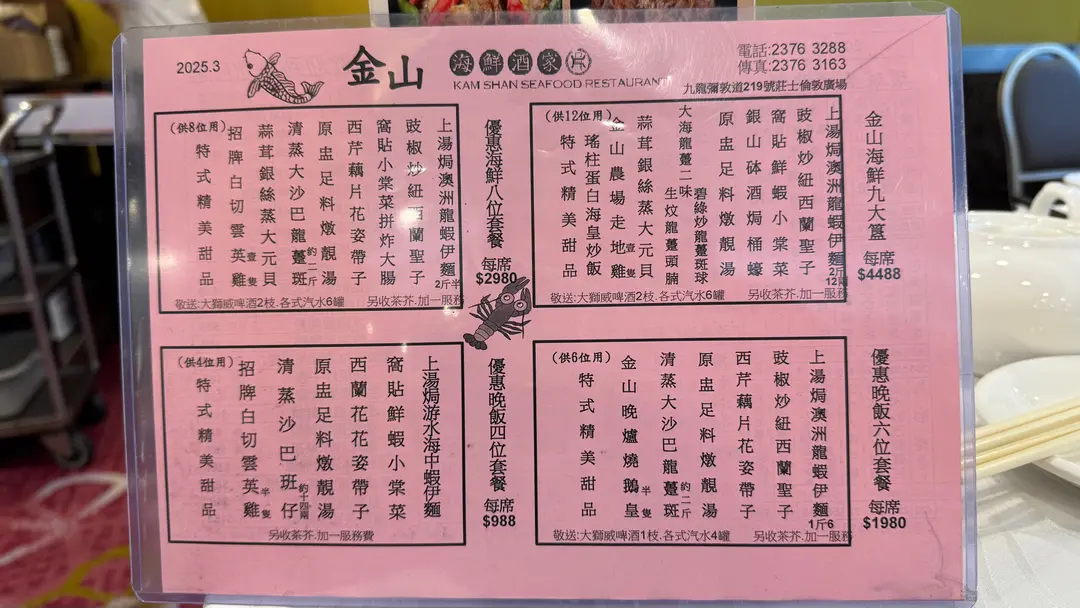 2025.3
金山
海鮮酒家
KAM SHAN SEAFOOD RESTAURANT
電話:2376 3288
傳真:2376 3163
九龍彌敦道219號莊士倫敦廣場
金山海鮮九大簋
每席
$4488
(供12位用)
上湯焗澳洲龍蝦伊麵
2斤
12兩
豉椒炒紐西蘭聖子
窩貼鮮蝦小棠菜
銀山砵酒焗桶蠔
原盅足料燉靚湯
大海龍躉二味
碧綠炒龍躉斑球
生炆龍躉頭腩
蒜茸銀絲蒸大元貝
金山農場走地雞 壹隻
瑤柱蛋白海皇炒飯
特式精美甜品
敬送:大獅威啤酒2枝.各式汽水6罐
另收茶芥.加一服務
優惠海鮮八位套餐
每席
$2980
(供8位用)
上湯焗澳洲龍蝦伊麵
2斤半
豉椒炒紐西蘭聖子
窩貼小棠菜拼炸大腸
西芹藕片花姿帶子
原盅足料燉靚湯
清蒸大沙巴龍躉斑 約二斤
蒜茸銀絲蒸大元貝
招牌白切雲英雞 壹隻
特式精美甜品
敬送:大獅威啤酒2枝.各式汽水6罐
另收茶芥.加一服務
優惠晚飯六位套餐
每席
$1980
(供6位用)
上湯焗澳洲龍蝦伊麵
1斤6
豉椒炒紐西蘭聖子
西芹藕片花姿帶子
原盅足料燉靚湯
清蒸大沙巴龍躉斑 約二斤
金山晚爐燒鵝皇 半隻
特式精美甜品
敬送:大獅威啤酒1枝.各式汽水4罐
另收茶芥.加一服務
優惠晚飯四位套餐
每席
$988
(供4位用)
上湯焗游水海中蝦伊麵
窩貼鮮蝦小棠菜
西蘭花花姿帶子
原盅足料燉靚湯
清蒸沙巴班仔 約十四兩
招牌白切雲英雞 半隻
特式精美甜品
另收茶芥.加一服務費